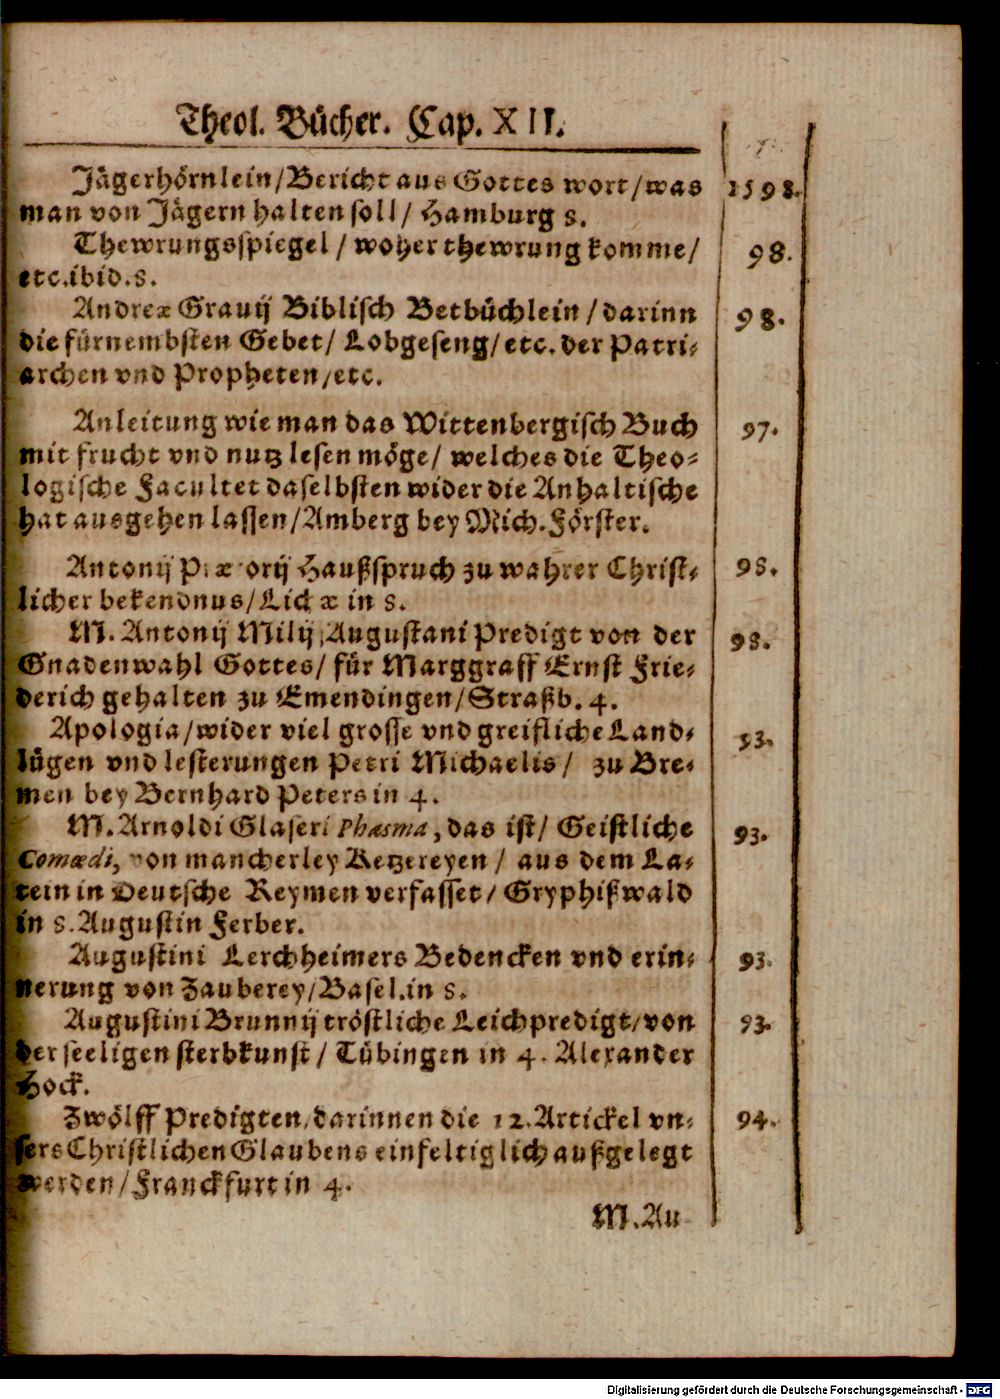 Theol. Bücher. Cap. XII.
Jägerhörnlein/Bericht aus Gottes wort/was 1598.
man von Jägern halten soll/ Hamburg 8.
Thewrungsspiegel / woher thewrung komme/ 98.
etc.ibid.8.
Andreæ Grauij Biblisch Betbüchlein / darinn 98.
die fürnembsten Gebet/ Lobgeseng/etc. der Patri-
archen vnd Propheten/etc.
Anleitung wie man das Wittenbergisch Buch 97.
mit frucht vnd nutz lesen möge/ welches die Theo-
logische Facultet daselbsten wider die Anhaltische
hat ausgehen lassen/Amberg bey Mich. Förster.
Antonij Prætorij Haußspruch zu wahrer Christ- 98.
licher bekendnus/Lichæ in 8.
M. Antonij Milij, Augustani Predigt von der 98.
Gnadenwahl Gottes/ für Marggraff Ernst Frie-
derich gehalten zu Emendingen/Straßb. 4.
Apologia/wider viel grosse vnd greifliche Land- 93.
lügen vnd lesterungen Petri Michaelis/ zu Bre-
men bey Bernhard Peters in 4.
M. Arnoldi Glaseri Phasma, das ist/ Geistliche 93.
Comœdi, von mancherley Ketzereyen / aus dem La-
tein in Deutsche Reymen verfasset/ Gryphißwald
in 8. Augustin Ferber.
Augustini Lerchheimers Bedencken vnd erin- 93.
nerung von Zauberey/Basel.in 8.
Augustini Brunnij tröstliche Leichpredigt/von 93.
der seeligen sterbkunst / Tübingen in 4. Alexander
Hock.
Zwölff Predigten/darinnen die 12. Artickel vn- 94.
sers Christlichen Glaubens einfeltiglich außgelegt
werden/Franckfurt in 4.
M. Au
Digitalisierung gefördert durch die Deutsche Forschungsgemeinschaft - DFG